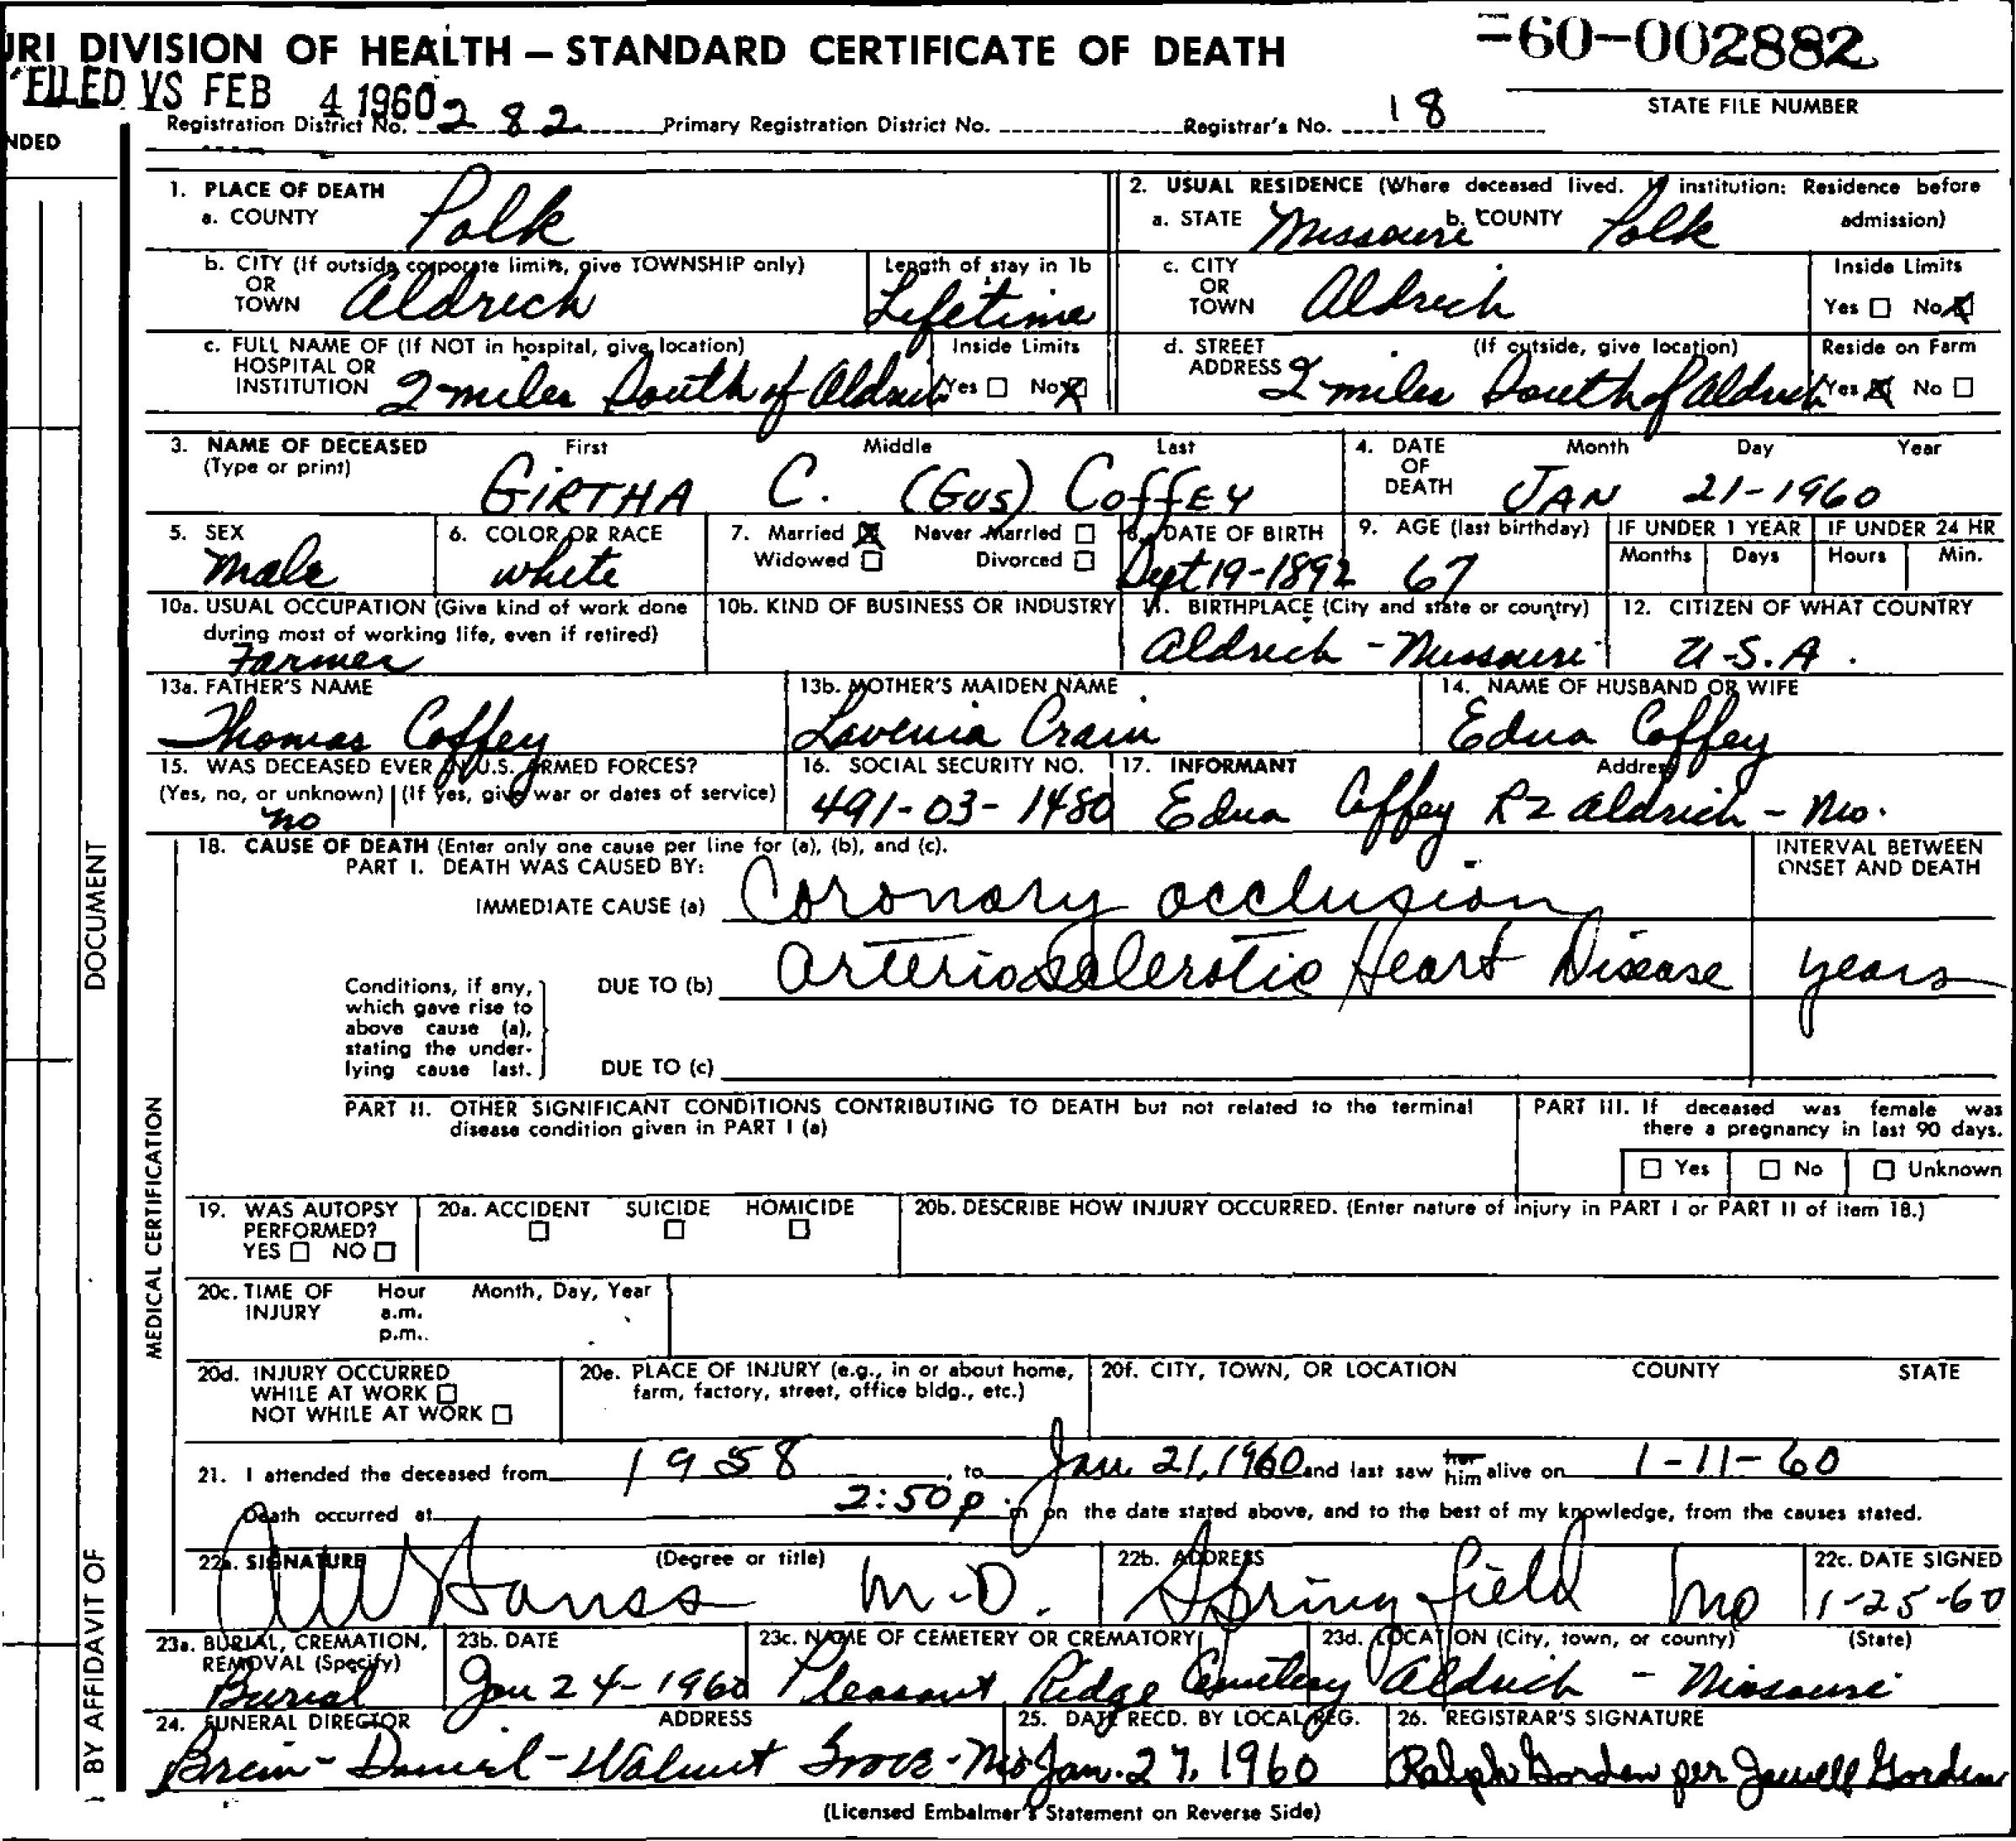 URI DIVISION OF HEALTH — STANDARD CERTIFICATE OF DEATH =60-002882
FILED VS FEB 4 1960 STATE FILE NUMBER
Registration District No. 282 Primary Registration District No. Registrar's No. 18
NDED
1. PLACE OF DEATH 2. USUAL RESIDENCE (Where deceased lived. If institution: Residence before admission)
a. COUNTY Polk a. STATE Missouri b. COUNTY Polk
b. CITY (If outside corporate limits, give TOWNSHIP only) OR TOWN Aldrich Length of stay in 1b Lifetime c. CITY OR TOWN Aldrich Inside Limits Yes □ No ☒
c. FULL NAME OF (If NOT in hospital, give location) HOSPITAL OR INSTITUTION 2 miles South of Aldrich Inside Limits Yes □ No ☒ d. STREET ADDRESS (If outside, give location) 2 miles South of Aldrich Reside on Farm Yes ☒ No □
3. NAME OF DECEASED (Type or print) First Middle Last GIRTHA C. (GUS) COFFEY 4. DATE OF DEATH Month Day Year JAN 21-1960
5. SEX Male 6. COLOR OR RACE white 7. Married ☒ Never Married □ Widowed □ Divorced □ 8. DATE OF BIRTH Sept 19-1892 9. AGE (last birthday) 67 IF UNDER 1 YEAR Months Days IF UNDER 24 HR Hours Min.
10a. USUAL OCCUPATION (Give kind of work done during most of working life, even if retired) Farmer 10b. KIND OF BUSINESS OR INDUSTRY 11. BIRTHPLACE (City and state or country) Aldrich - Missouri 12. CITIZEN OF WHAT COUNTRY U.S.A.
13a. FATHER'S NAME Thomas Coffey 13b. MOTHER'S MAIDEN NAME Lavenia Crain 14. NAME OF HUSBAND OR WIFE Edna Coffey
15. WAS DECEASED EVER IN U.S. ARMED FORCES? (Yes, no, or unknown) (If yes, give war or dates of service) no 16. SOCIAL SECURITY NO. 491-03-1480 17. INFORMANT Address Edna Coffey R2 Aldrich - Mo.
18. CAUSE OF DEATH (Enter only one cause per line for (a), (b), and (c). INTERVAL BETWEEN ONSET AND DEATH
PART I. DEATH WAS CAUSED BY:
IMMEDIATE CAUSE (a) Coronary occlusion
Conditions, if any, which gave rise to above cause (a), stating the underlying cause last. DUE TO (b) Arteriosclerotic Heart Disease years
DUE TO (c)
PART II. OTHER SIGNIFICANT CONDITIONS CONTRIBUTING TO DEATH but not related to the terminal disease condition given in PART I (a) PART III. If deceased was female was there a pregnancy in last 90 days.
□ Yes □ No □ Unknown
19. WAS AUTOPSY PERFORMED? YES □ NO □ 20a. ACCIDENT □ SUICIDE □ HOMICIDE □ 20b. DESCRIBE HOW INJURY OCCURRED. (Enter nature of injury in PART I or PART II of item 18.)
20c. TIME OF INJURY Hour a.m. p.m. Month, Day, Year
20d. INJURY OCCURRED WHILE AT WORK □ NOT WHILE AT WORK □ 20e. PLACE OF INJURY (e.g., in or about home, farm, factory, street, office bldg., etc.) 20f. CITY, TOWN, OR LOCATION COUNTY STATE
21. I attended the deceased from 1958, to Jan 21, 1960 and last saw her him alive on 1-11-60
Death occurred at 2:50 p. m on the date stated above, and to the best of my knowledge, from the causes stated.
22a. SIGNATURE (Degree or title) M.D. 22b. ADDRESS Springfield Mo 22c. DATE SIGNED 1-25-60
23a. BURIAL, CREMATION, REMOVAL (Specify) Burial 23b. DATE Jan 24-1960 23c. NAME OF CEMETERY OR CREMATORY Pleasant Ridge Cemetery 23d. LOCATION (City, town, or county) (State) Aldrich - Missouri
24. FUNERAL DIRECTOR ADDRESS Brim-Daniel-Walnut Grove-Mo 25. DATE RECD. BY LOCAL REG. Jan. 27, 1960 26. REGISTRAR'S SIGNATURE Ralph Gorden per Jewell Gorden
(Licensed Embalmer's Statement on Reverse Side)
DOCUMENT
MEDICAL CERTIFICATION
BY AFFIDAVIT OF